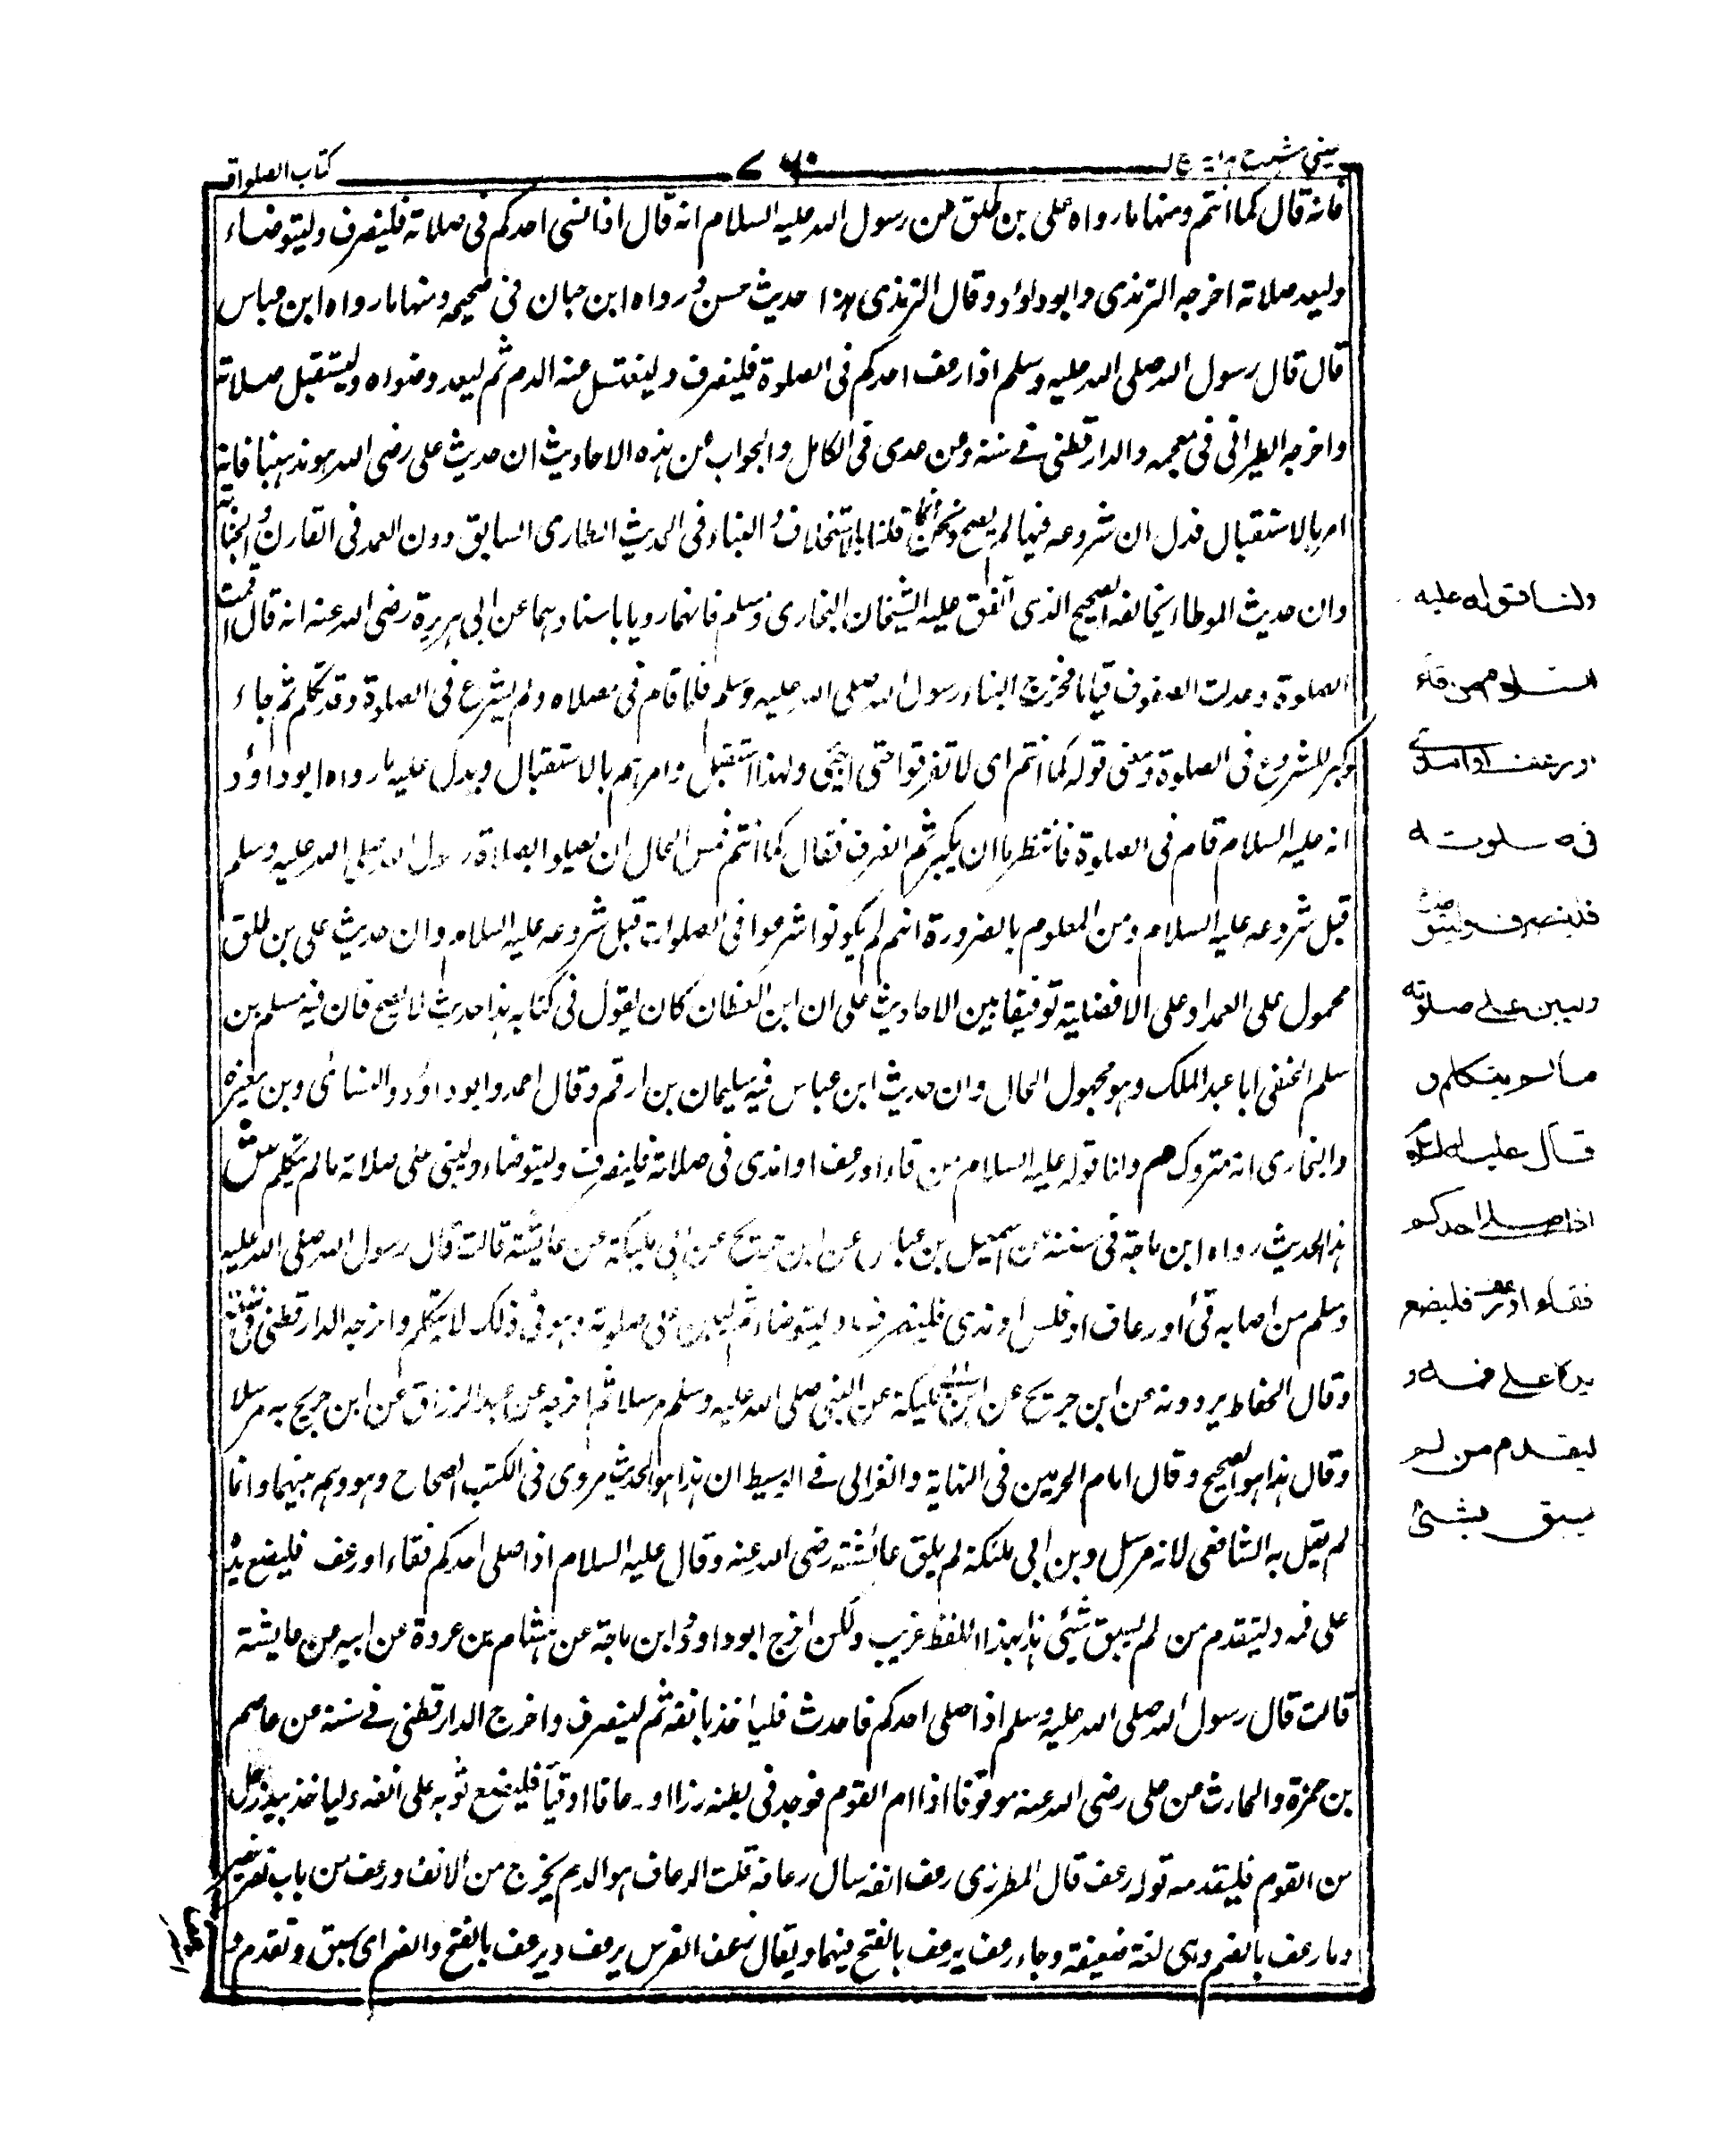 عيني شرح هداية ج ا
٧٦٠
كتاب الصلواة
فانه قال كما انتم ومنها ما رواه على بن طلق عن رسول الله عليه السلام انه قال اذا نسى احدكم فى صلاته فلينصرف وليتوضاء
وليعد صلاته اخرجه الترمذى وابوداؤد وقال الترمذى هذا حديث حسن ورواه ابن حبان فى صحيحه ومنها ما رواه ابن عباس
قال قال رسول الله صلى الله عليه وسلم اذا رعف احدكم فى الصلوة فلينصرف وليغتسل عنه الدم ثم ليعد وضواه وليستقبل صلاته
واخرجه الطبرانى فى معجمه والدارقطنى فے سننه وبن عدى فى الكامل والجواب عن هذه الاحاديث ان حديث على رضى الله هو مذهبنا فانه
امر بالاستقبال فدل ان شروعه فيها لم يصح ونحن قلنا بالاستخلاف والبناء فى الحديث الطارى السابق دون العمد فى القارن والجناية
وان حديث الموطاء يخالفه الصحيح الذى اتفق عليه الشيخان البخارى ومسلم فانهما رويا باسناد هما عن ابى هريرة رضى الله عنه انه قال اقيمت
الصلوة وعدلت الصفوف قياما فخرج الينا رسول الله صلى الله عليه وسلم فلما قام فى مصلاه ولم يشرع فى الصلوة وقد تكلم ثم جاء
وكبر للشروع فى الصلوة ومعنى قوله كما انتم اى لا تفرقوا حتى اجيئ ولهذا استقبل وامرهم بالاستقبال ويدل عليه ما رواه ابوداؤد
انه عليه السلام قام فى الصلوة فانتظرنا ان يكبر ثم انصرف فقال كما انتم فمن المحال ان يصلوا بصلاة رسول الله صلى الله عليه وسلم
قبل شروعه عليه السلام ومن المعلوم بالضرورة انهم لم يكونوا شرعوا فى الصلوات قبل شروعه عليه السلام وان حديث على بن طلق
محمول على العمد او على الافضلية توفيقا بين الاحاديث على ان ابن القطان كان يقول فى كتابه هذا حديث لا يصح فان فيه مسلم بن
سلم الحنفى ابا عبد الملك وهو مجهول الحال وان حديث ابن عباس فيه سليمان بن ارقم وقال احمد وابوداؤد والنسائى وبن مغيره
والبخارى انه متروك هم ولنا قوله عليه السلام من قاء او رعف او امذى فى صلاته فلينصرف وليتوضاء وليبنى على صلاته ما لم يتكلم ش
هذا الحديث رواه ابن ماجة فى سننه عن اسمعيل بن عياش عن ابن جريج عن ابى مليكة عن عايشة قالت قال رسول الله صلى الله عليه
وسلم من اصابه قئ او رعاف او قلس او مذى فلينصرف وليتوضاء ثم ليبن على صلوته وهو فى ذلك لا يتكلم واخرجه الدارقطنى فى سننه
وقال الحفاظ يروونه عن ابن جريج عن ابن ابى مليكة عن النبى صلى الله عليه وسلم مرسلا ثم اخرجه عن عبد الرزاق عن ابن جريج به مرسلا
وقال هذا هو الصحيح وقال امام الحرمين فى النهاية والغزالى فے الوسيط ان هذا هو الحديث مروى فى الكتب الصحاح وهو وهم منهما وانما
لم يقل به الشافعى لانه مرسل وبن ابى ملكية لم يلق عائشة رضى الله عنه وقال عليه السلام اذا صلى احدكم فقاء او رعف فليضع يده
على فمه وليتقدم من لم يسبق شئى هذا بهذا اللفظ غريب ولكن اخرج ابوداود وابن ماجة عن هشام بن عروة عن ابيه عن عايشة
قالت قال رسول الله صلى الله عليه وسلم اذا صلى احدكم فاحدث فليأخذ بانفه ثم لينصرف واخرج الدارقطنى فے سننه عن عاصم
بن حمزة والحارث عن على رضى الله عنه موقوفا اذا ام القوم فوجد فى بطنه رزا او رعافا او قيأ فليضع ثوبه على انفه وليأخذ بيد رجل
من القوم فليقدمه قوله رعف قال المطرزى رعف انفه سال رعافه قلت الرعاف هو الدم يخرج من الانف ورعف من باب نصر ينصر
وما رعف بالضم وهى لغة ضعيفة وجاء رعف يرعف بالفتح فيهما ويقال رعف الفرس يرعف ويرعف بالفتح والضم اى سبق وتقدم
ولنا قوله عليه
السلام من قاء
او رعف او امذى
فى صلوته
فلينصرف وليتوضأ
وليبن على صلوته
ما لم يتكلم و
قال عليه السلام
اذا صلى احدكم
فقاء او رعف فليضع
يده على فمه و
ليقدم من لم
يسبق بشئ